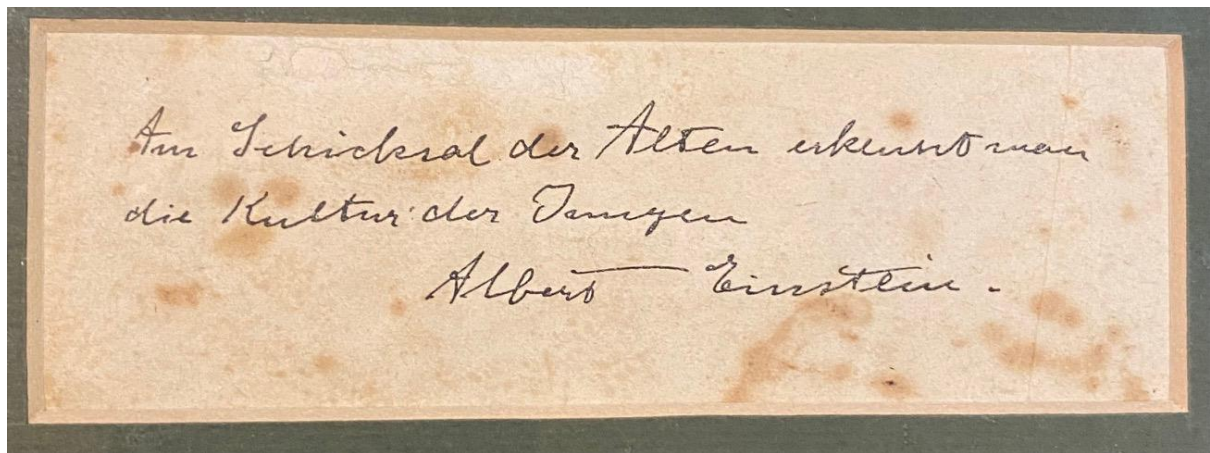 Am Schicksal der Alten erkennt man
die Kultur der Jungen
Albert Einstein.